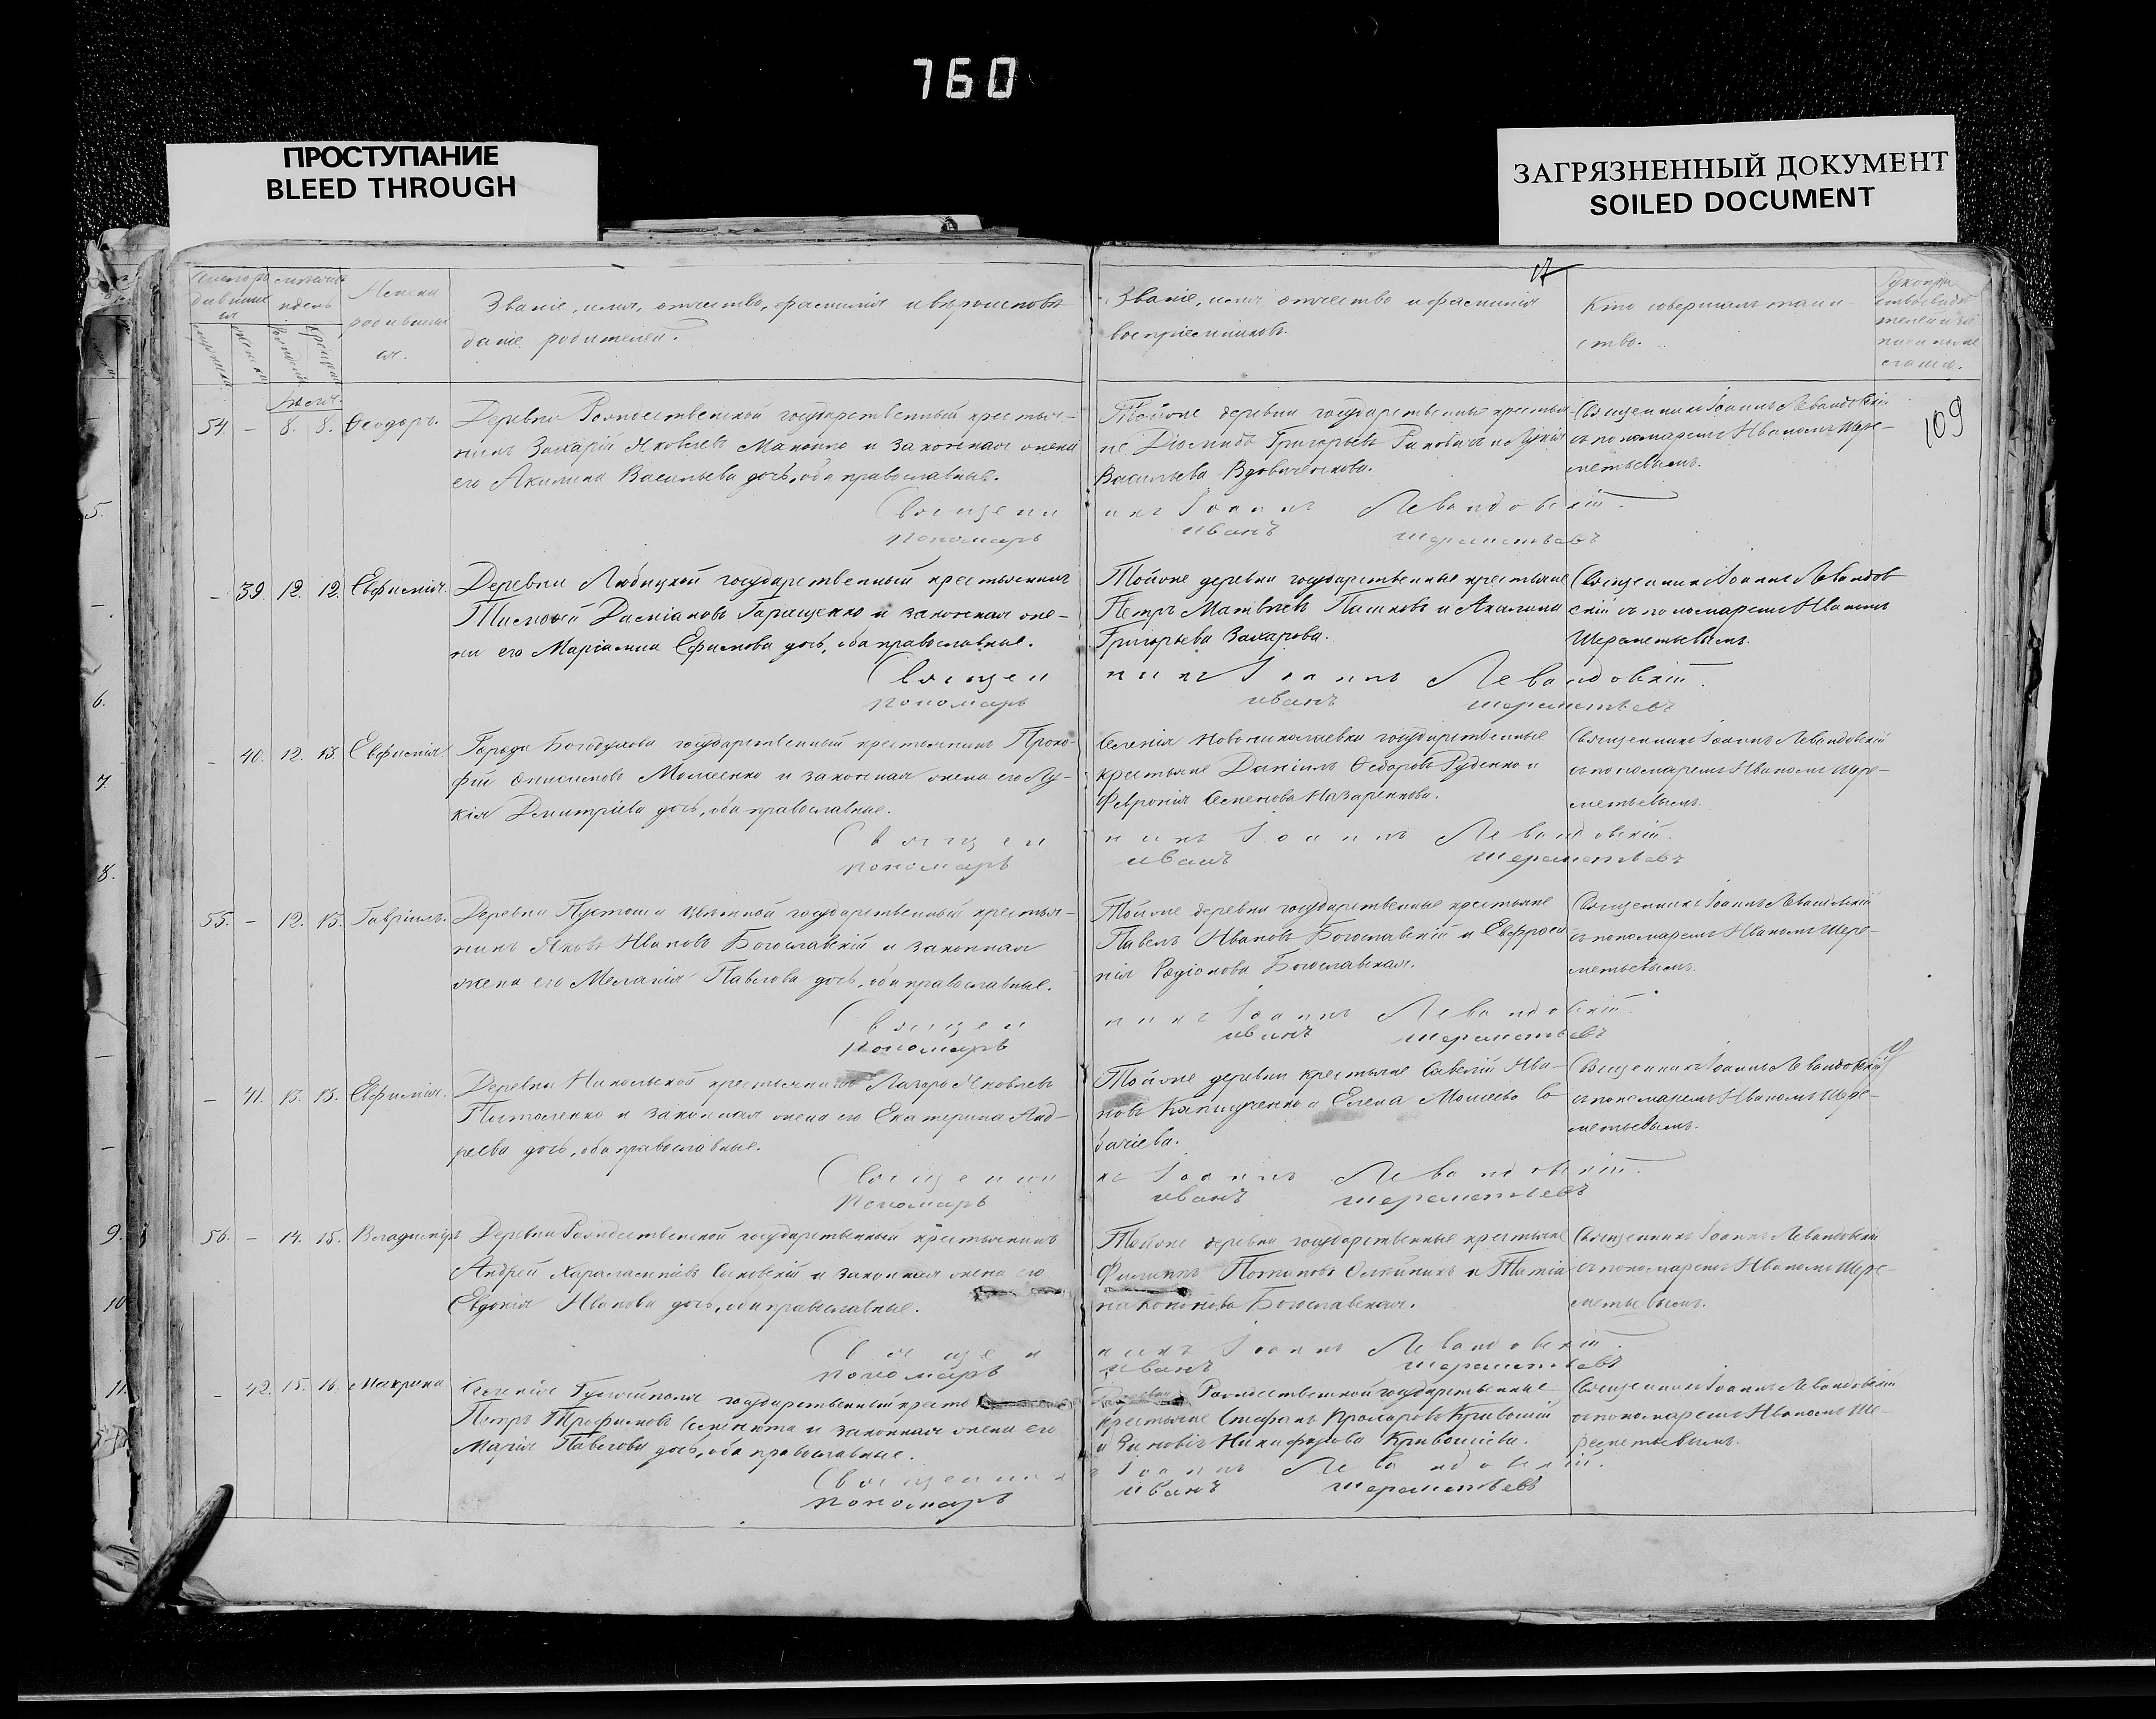 760
ПРОСТУПАНИЕ
BLEED THROUGH
ЗАГРЯЗНЕННЫЙ ДОКУМЕНТ
SOILED DOCUMENT
17
109
Имена
родивших
ся.
Званіе, имя, отчество, фамилія и вѣроисповѣ
даніе родителей.
Званіе, имя, отчество и фамилія
воспріемниковъ.
Кто совершалъ таин
ство.
54. – 8. 8. Ѳеодоръ.
Деревни Рождественской государственный крестья-
нинъ Захарій Яковлевъ и законная жена
его Акилина Васильева дочь, оба православные.
Тойже деревни государственные крестья
не Діомидъ Григорьевъ и Лукія
Васильева Вдовиченкова.
Священникъ Іоаннъ Левандовскій
съ пономаремъ Иваномъ Шере-
метьевымъ.
Священникъ Іоаннъ Левандовскій.
пономарь иванъ шереметьевъ
– 39. 12. 12. Евфимія.
Деревни Любицкой государственный крестьянинъ
Даміановъ Геращенко и законная же-
на его Маріамна Ефимова дочь, оба православные.
Тойже деревни государственные крестьяне
Петръ Матвѣевъ Пашковъ и Акилина
Григорьева Захарова.
Священникъ Іоаннъ Левандов
скій съ пономаремъ Иваномъ
Шереметьевымъ.
Священникъ Іоаннъ Левандовскій.
пономарь иванъ шереметьевъ
– 40. 12. 13. Евфимія.
Города Богодухова государственный крестьянинъ Проко-
фій Онисимовъ Моисеенко и законная жена его Лу-
кія Димитріева дочь, оба православные.
Селенія Новониколаевки государственные
крестьяне Даніилъ Ѳедоровъ Руденко и
Февронія Семенова Назаренкова.
Священникъ Іоаннъ Левандовскій
съ пономаремъ Иваномъ Шере-
метьевымъ.
Священникъ Іоаннъ Левандовскій.
пономарь иванъ шереметьевъ
55. – 12. 13. Гавріилъ.
Деревни государственный крестья-
нинъ Яковъ Ивановъ Богославскій и законная
жена его Меланія Павлова дочь, оба православные.
Тойже деревни государственные крестьяне
Павелъ Ивановъ Богославскій и Евфроси
нія Родіонова Богославская.
Священникъ Іоаннъ Левандовскій
съ пономаремъ Иваномъ Шере-
метьевымъ.
Священникъ Іоаннъ Левандовскій.
пономарь иванъ шереметьевъ
– 41. 13. 13. Евфимія.
Деревни Никольской крестьянинъ Лазарь Яковлевъ
и законная жена его Екатерина Анд-
реева дочь, оба православные.
Тойже деревни крестьяне Савелій Ива-
новъ и Елена Моисеева
Священникъ Іоаннъ Левандовскій
съ пономаремъ Иваномъ Шере-
метьевымъ.
Священникъ Іоаннъ Левандовскій.
пономарь иванъ шереметьевъ
56. – 14. 15. Владиміръ
Деревни Рождественской государственный крестьянинъ
Андрей Харалампіевъ и законная жена его
Евдокія Иванова дочь, оба православные.
Тойже деревни государственные крестьяне
Филиппъ Потаповъ Олейникъ и Татіа
на Кононова Богославская.
Священникъ Іоаннъ Левандовскій
съ пономаремъ Иваномъ Шере-
метьевымъ.
Священникъ Іоаннъ Левандовскій
пономарь иванъ шереметьевъ
– 42. 15. 16. Макрина
Селенія Гуляйполя государственный крест
Петръ Трофимовъ и законная жена его
Марія Павлова дочь, оба православные.
Рождественской государственные
крестьяне Стефанъ Кривошій
и Зиновія Никифорова Кривошіева.
Священникъ Іоаннъ Левандовскій
съ пономаремъ Иваномъ Ше-
реметьевымъ.
Священникъ Іоаннъ Левандовскій.
пономарь иванъ шереметьевъ